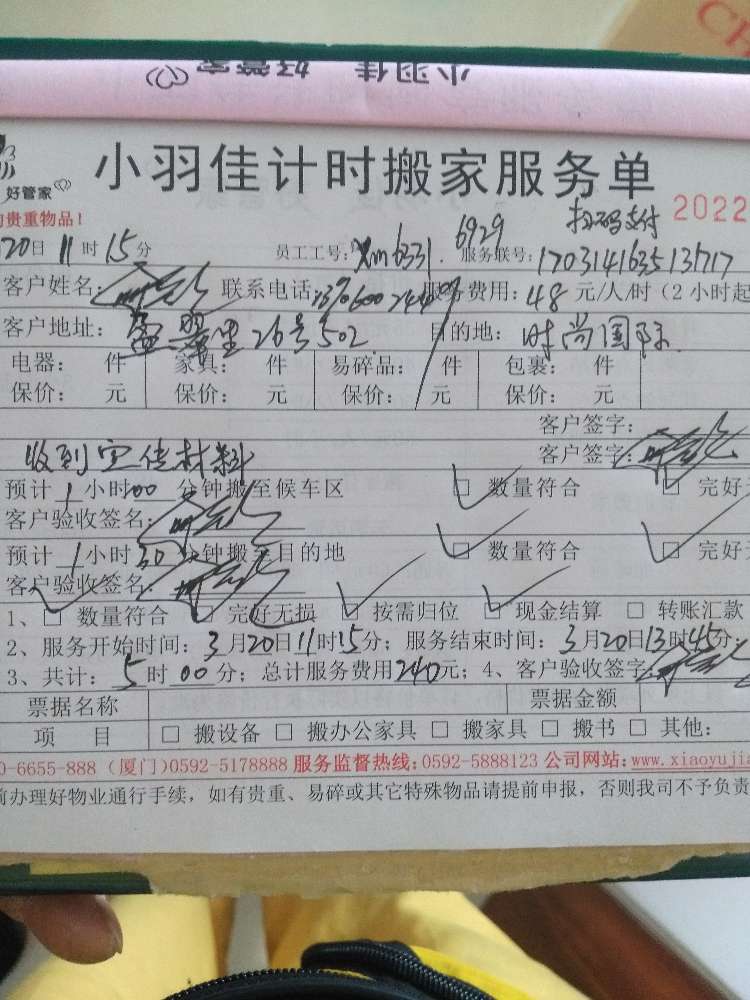 小羽佳 好管家
小羽佳计时搬家服务单
好管家
贵重物品！
扫码支付 2022
20日11时15分 员工工号：xm6331. 6929 服务联号：1703141635131717
客户姓名： 联系电话： 服务费用：48元/人/时（2小时起
客户地址： 26号502 目的地：时尚国际
电器： 件 家具： 件 易碎品： 件 包裹： 件
保价： 元 保价： 元 保价： 元 保价： 元
客户签字：
收到宣传材料 客户签字：
预计1小时00分钟搬至候车区 □数量符合 □完好
客户验收签名：
预计1小时30分钟搬至目的地 □数量符合 □完好
客户验收签名：
1、□数量符合 □完好无损 □按需归位 □现金结算 □转账汇款
2、服务开始时间：3月20日11时15分；服务结束时间：3月20日13时45分；
3、共计：5时00分；总计服务费用240元；4、客户验收签字
票据名称 票据金额
项 目 □搬设备 □搬办公家具 □搬家具 □搬书 □其他：
0-6655-888（厦门）0592-5178888 服务监督热线：0592-5888123 公司网站：www.xiaoyujia
前办理好物业通行手续，如有贵重、易碎或其它特殊物品请提前申报，否则我司不予负责